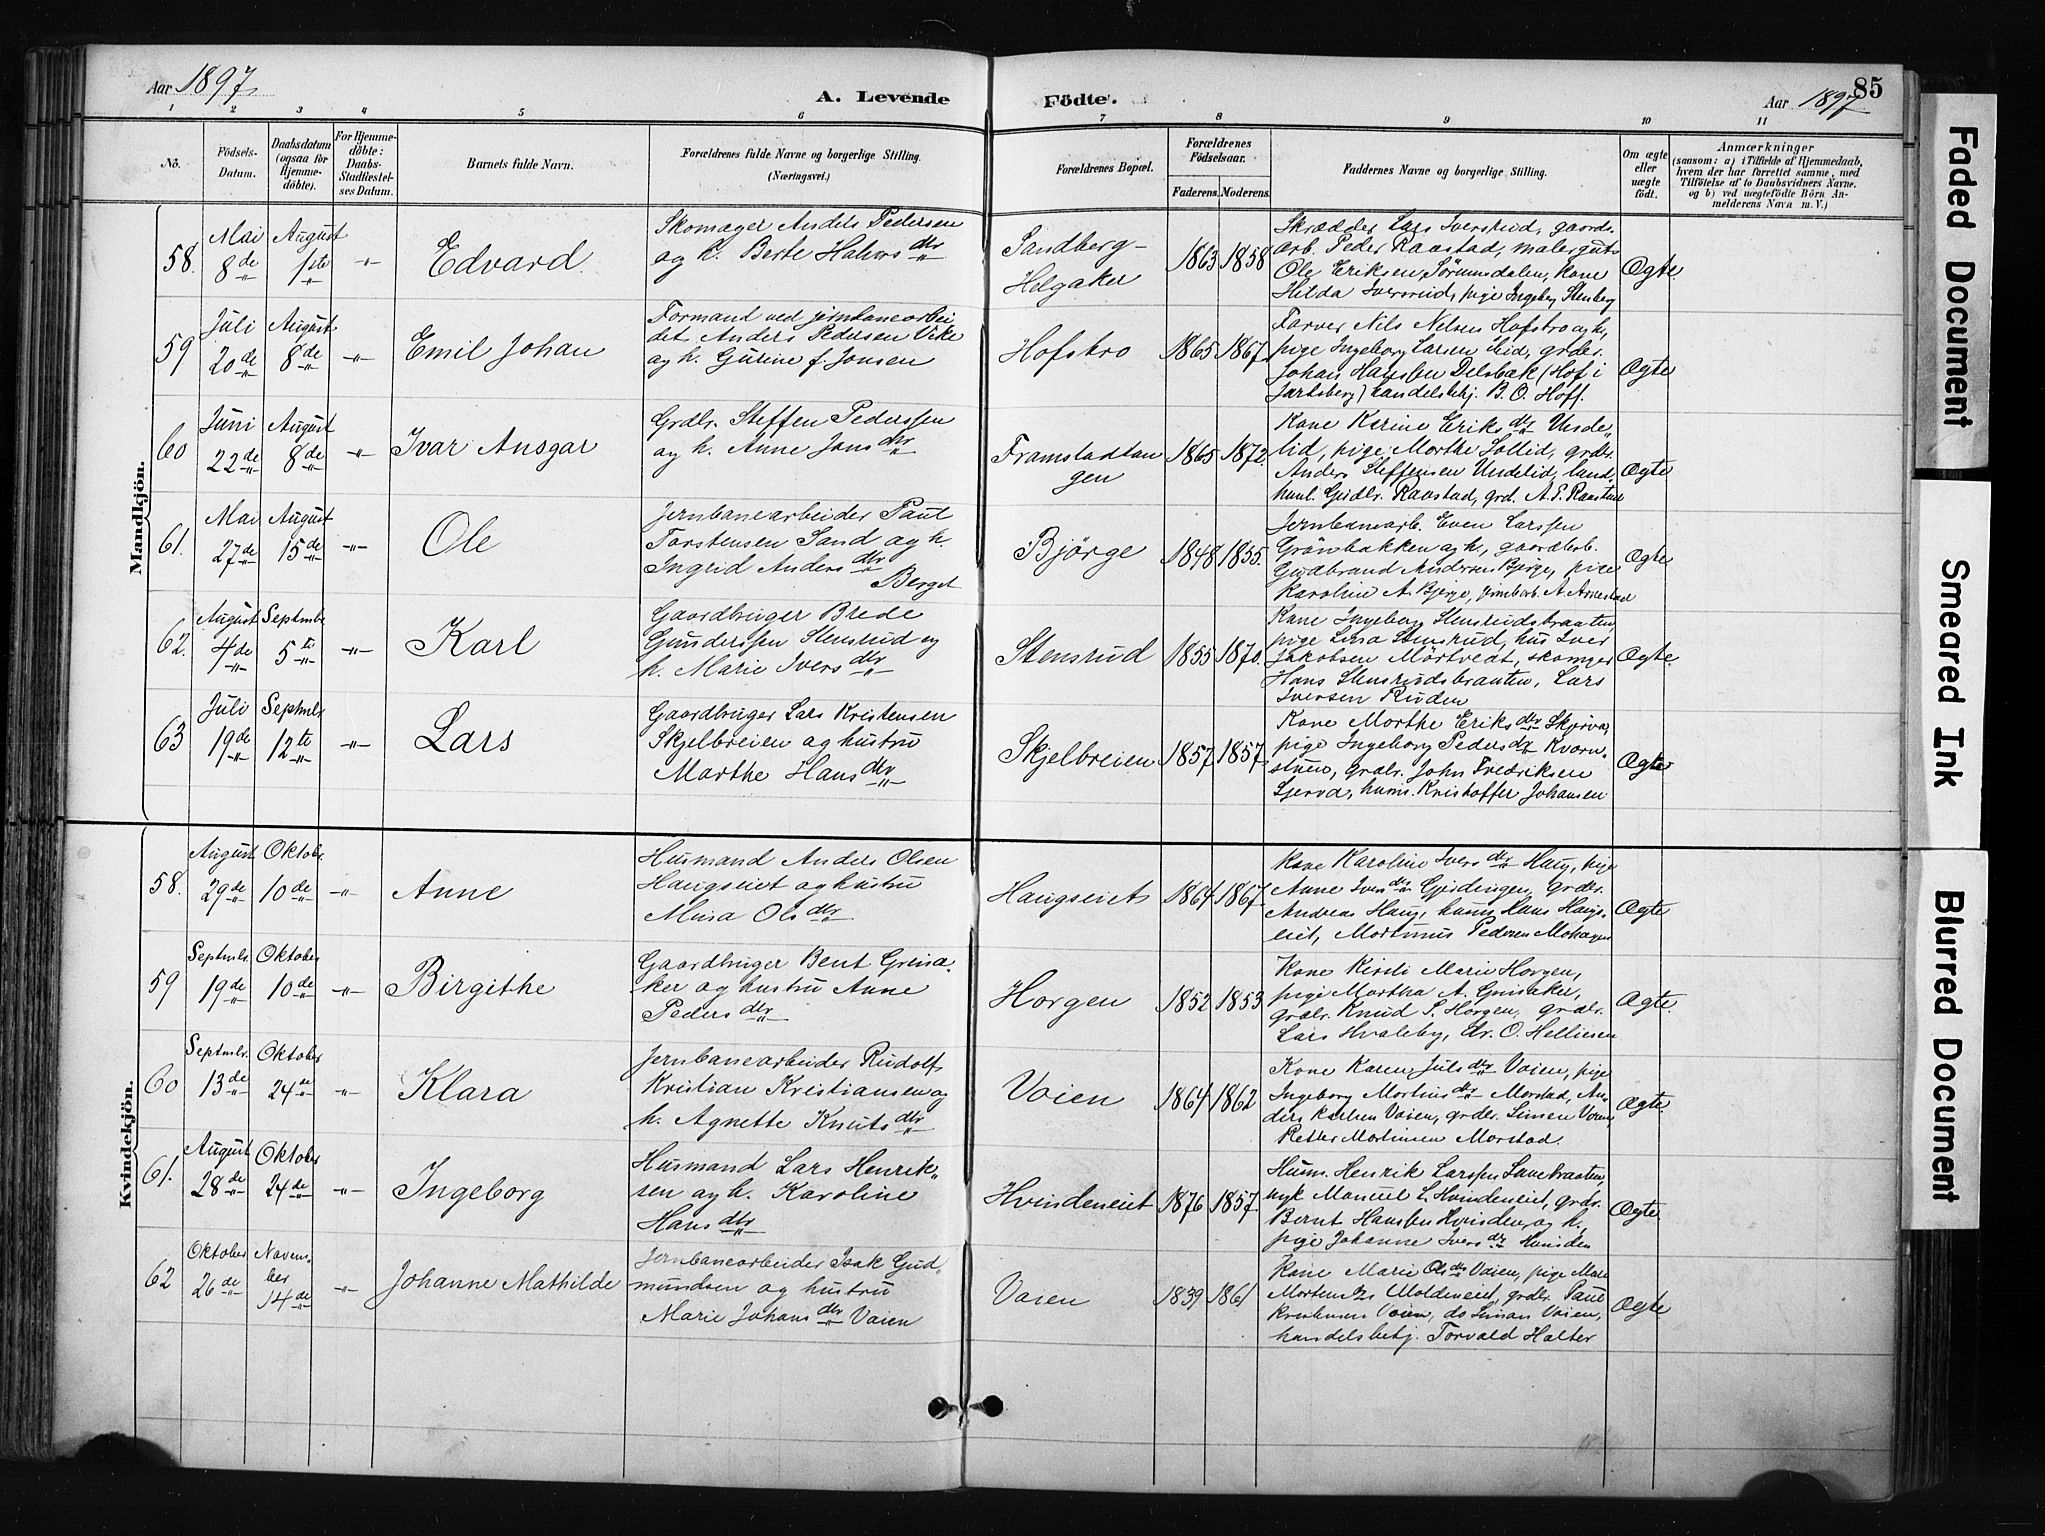 Aar 1897.
A. Levende Födte.
Aar 1897
85
1 2 3 4 5 6 7 8 9 10 11
No.
Födsels-
Datum.
Daabsdatum
(ogsaa for
Hjemme-
döbte).
For Hjemme-
döbte:
Daabs-
Stadfæstel-
ses Datum.
Barnets fulde Navn.
Forældrenes fulde Navne og borgerlige Stilling.
(Næringsvei.)
Forældrenes Bopæl.
Forældrenes
Födselsaar.
Faderens. Moderens.
Faddernes Navne og borgerlige Stilling.
Om ægte
eller
uægte
födt.
Anmærkninger
(saasom: a) i Tilfælde af Hjemmedaab,
hvem der har forrettet samme, med
Tilföielse af to Daabsvidners Navne.
og b) ved uægtefödte Börn An-
melderens Navn m. V.)
Mandkjön.
58. Mai 8de August 1ste -"- Edvard.
Skomager Anders Pedersen
og h. Berte Halvorsdtr
Sandberg-
Helgaker
1863 1858
Skrædder Lars Iversrud, gaards-
arb. Peder Raastad, malergut
Ole Eriksen Sörumsdalen, kone
Hilda Iversrud, pige Ingeborg Stenberg
Ægte
59 Juli 20de August 8de -"- Emil Johan
Formand ved jernbanearbei
det Anders Pedersen Vike
og h. Gurine f. Jonsen
Hofstro
1865 1867.
Farver Nils Nelsen Hofstro og h,
pige Ingeborg Larsen Lid, grdbr.
Johan Hanssen Delsbæk (Hof i
Jarlsberg) handelsbetj. B. O. Hoff.
Ægte
60 Juni 22de August 8de -"- Ivar Ansgar
Grdbr. Steffen Pederssen
og h. Anne Jonsdtr
Framstadtan
gen
1865 1872.
Kone Karine Eriksdtr Unde-
lid, pige Marthe Sollid, grdbr.
Anders Steffensen Undelid, land.
Grdbr. Raastad, grd. A. P. Raastad
Ægte
61. Mai 27de August 15de -"- Ole
Jernbanearbeider Paul
Torstensen Sand og h.
Ingrid Andersdtr
Berget
Bjørge
1848 1855.
Jernbanearb. Even Larssen
Grönbakken og h., gaardarb.
Gudbrand Andersen Bjørge, pige
Karoline A. Bjørge, jernbarb. A. Arnestad
Ægte
62. August 4de Septmbr 5te -"- Karl
Gaardbruger Brede
Gunderssen Stensrud og
h. Marie Iversdtr
Stensrud
1855 1870.
Kone Ingeborg Stensrudsbraaten,
pige Lina Stensrud, hus Iver
Jakobsen Mörtvedt, skomger
Hans Stensrudsbraaten, Lars
Iversen Ruden
Ægte
63 Juli 19de Septmbr 12te -"- Lars
Gaardbruger Lars Kristensen
Skjelbreien og hustru
Marthe Hansdtr
Skjelbreien
1857 1857.
Kone Marthe Eriksdtr Skjerva,
pige Ingeborg Pedersdtr Kvern-
stuen, grdbr. John Fredriksen
husm. Kristoffer Johansen
Ægte
Kvindekjön.
58. August 29de Oktober 10de -"- Anne
Husmand Anders Olsen
Haugseiet og hustru
Olsdtr
Haugseiet
1864 1867.
Kone Karoline Iversdtr Haug, pige
Anne Iversdtr Gjerdingen, grdbr.
Andreas Haug, husm Hans Haugs-
eiet, Martinus Pedersen Mohagen
Ægte
59 Septmbr. 19de Oktober 10de -"- Birgithe
Gaardbruger Bent Grina-
ker og hustru Anne
Pedersdtr
Horgen
1852 1853
Kone Kirsti Marie Horgen,
pige Martha A. Grinaker,
grdbr. Knud P. Horgen, grdbr.
Lars Hvaleby, Elr. O. Helliesen
Ægte.
60 Septmbr. 13de Oktober 24de -"- Klara
Jernbanearbeider Rudolf
Kristian Kristiansen og
h. Agnette Knutsdtr
Vøien
1864 1862
Kone Karen Julsdtr Vøien, pige
Ingeborg Martinsdtr Morstad, An-
ders Karlsen Vøien, grdbr. Simen Vøien
Petter Martinsen Morstad.
Ægte
61. August 28de Oktober 24de -"- Ingeborg
Husmand Lars Henrik-
sen og h. Karoline
Hansdtr
Hvindeneiet
1876 1857.
Husm. Henrik Larssen Lavebraaten,
L. Hvindeneiet, grdbr.
Bernt Hanssen Hvinden og h.,
pige Johanne Iversdtr Hvinden
Ægte.
62 Oktober 26de Novem-
ber 14de -"- Johanne Mathilde
Jernbanearbeider Isak Gud-
mundsen og hustru
Marie Johansdtr Vøien
Vøien
1839 1861
Kone Marie Olsdtr Vøien, pige Mari
Mortens Moldeneiet, grdbr. Paul
Kristiansen Vøien, do Simon Vøien,
handelsbetj. Torvald Halter
Ægte
Faded Document
Smeared Ink
Blurred Document